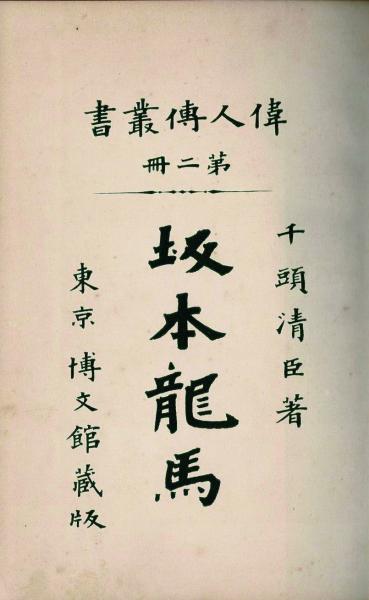 偉人傳叢書
第二冊
千頭清臣著
坂本龍馬
東京 博文館藏版